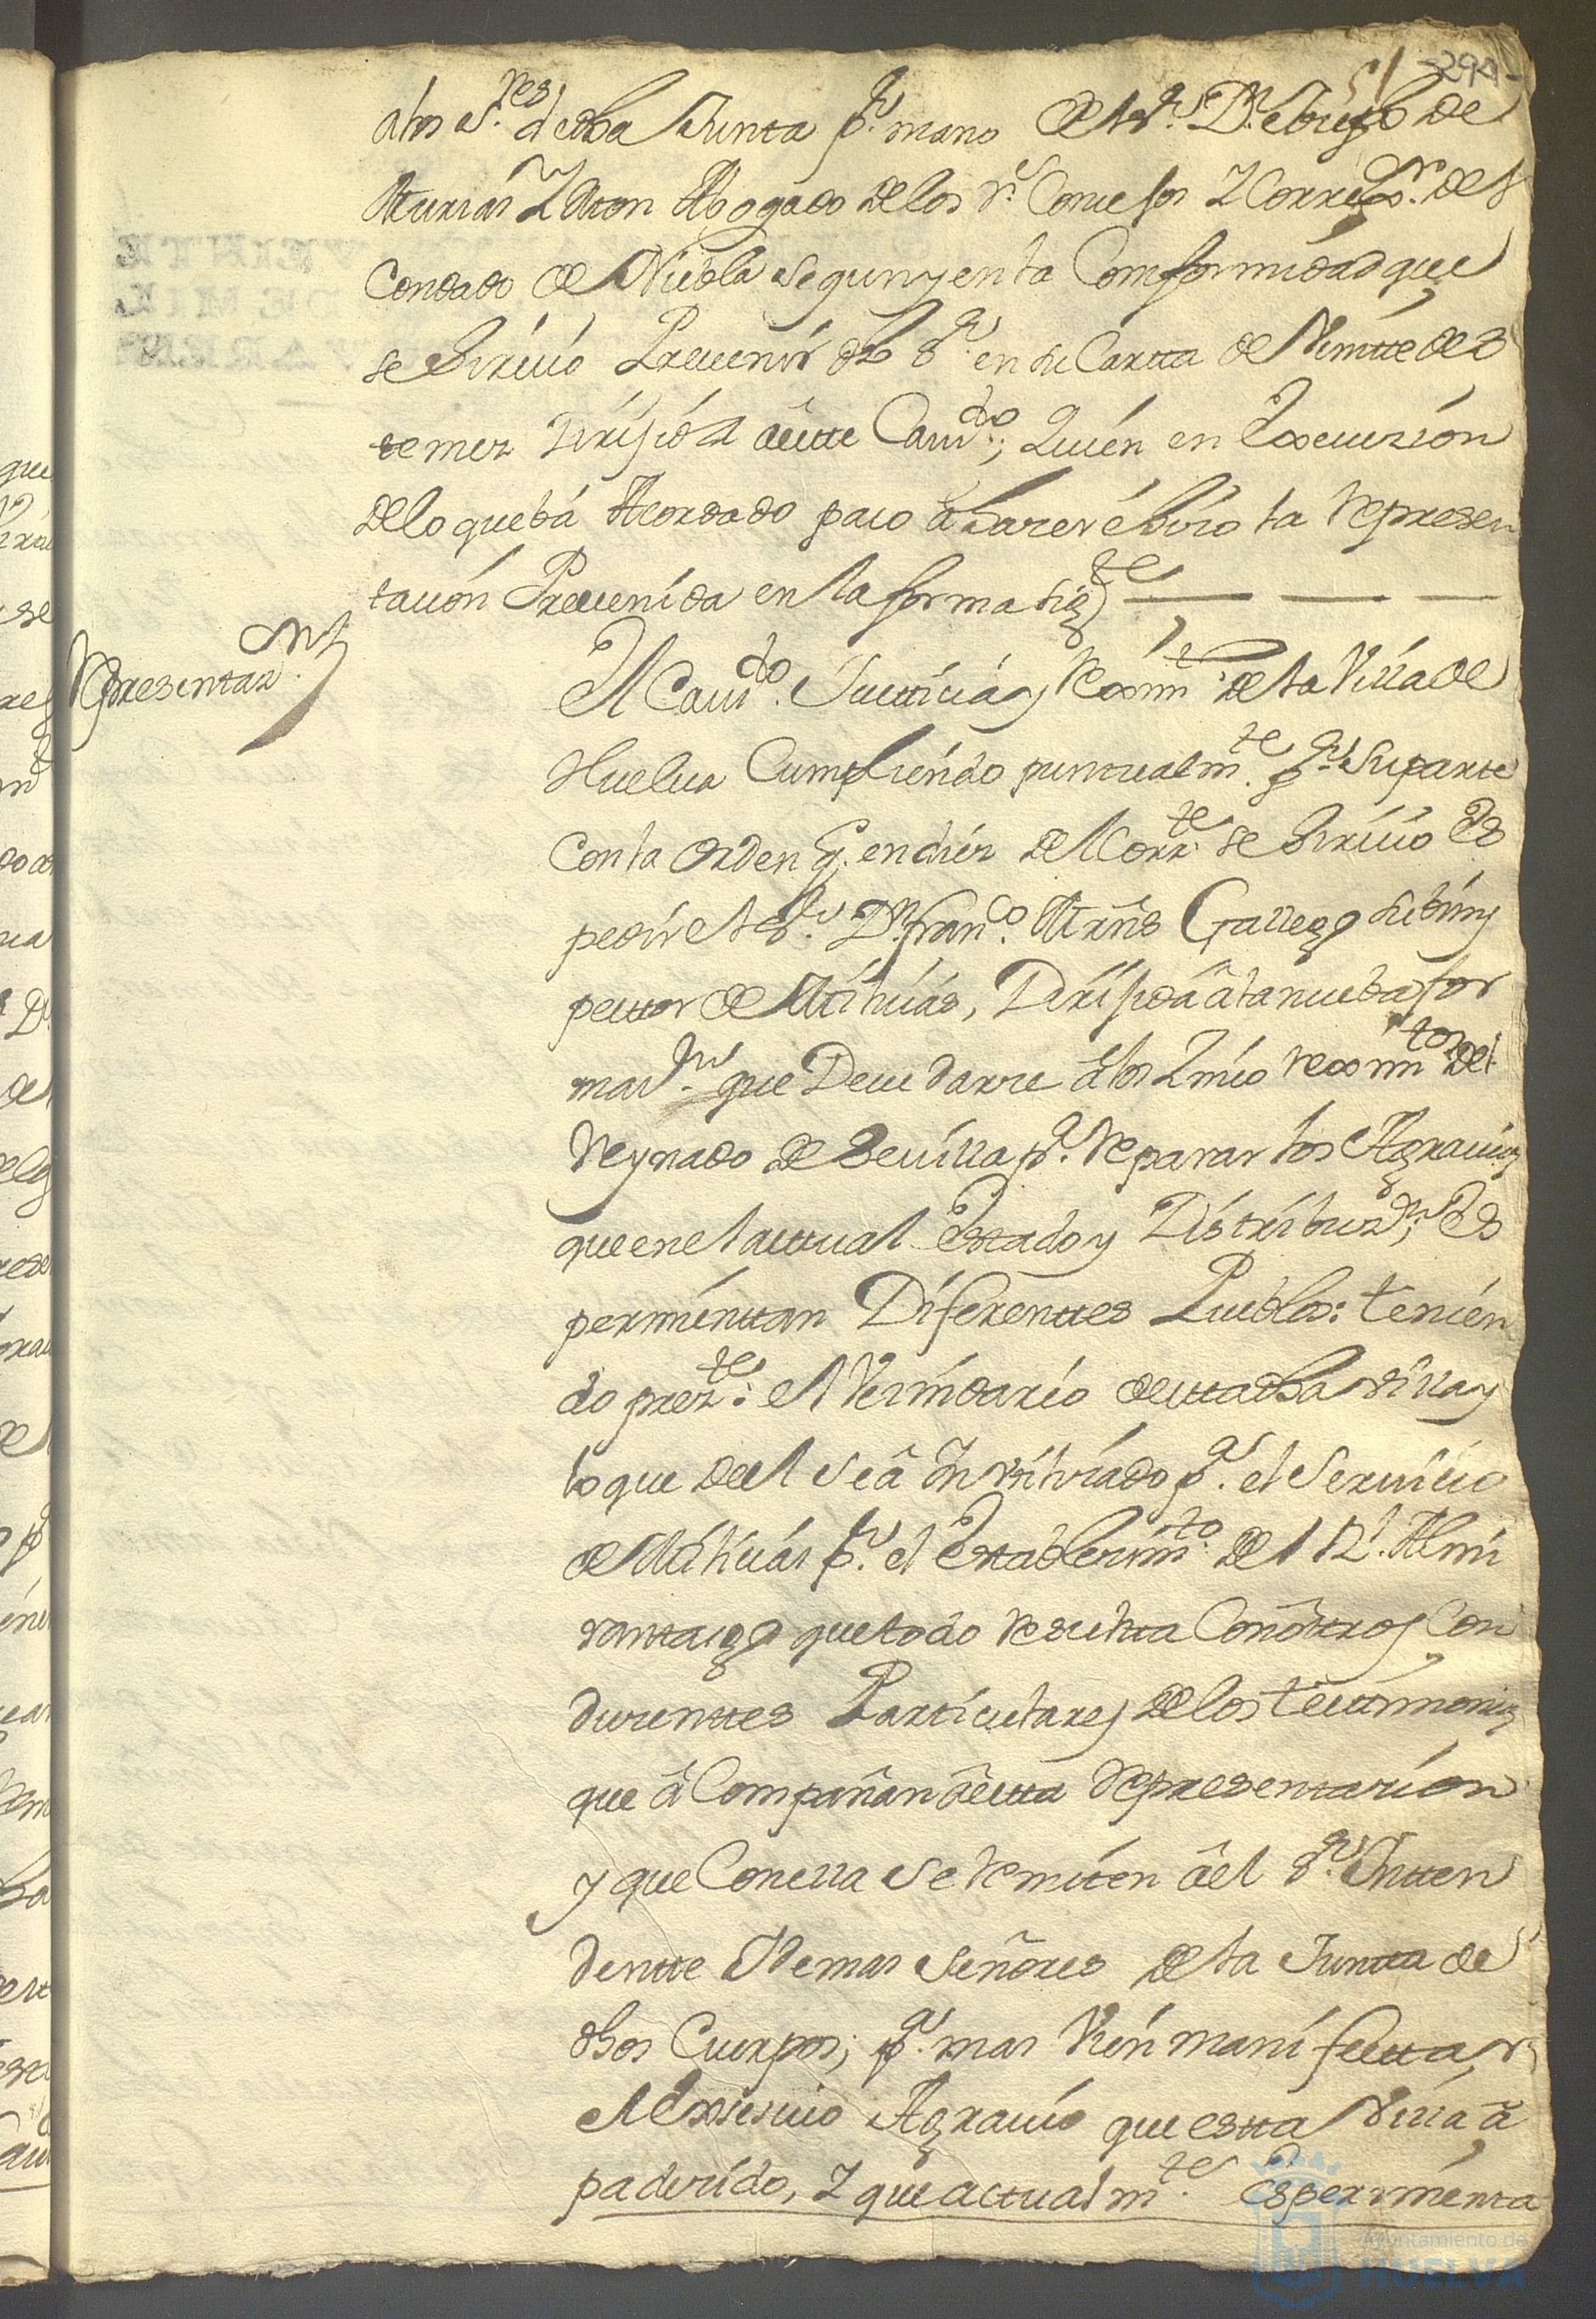 51 -291-
a los S.res de dha Junta p.r mano del S.r D.n
Asturias Y Abogado de los R.s Consejos Y Correg.or del
Condado de Niebla segun y en la Comformidad que
se Sirvió Prevenir dho S.r en su Cartta de Veintte de
este mes Dirijida â este Cavd.o; Quién en Execuzión
de lo que está Acordado paso â hacer é hizo la represen
tación Prevenida en la forma sig.te
Representaz.n
El Cavd.o Justicia y Reximt.o de la Villa de
Huelva Cumpliéndo puntualm.te p.r su parte
con la orden q. en diéz del Corr.te se Sirvió Es
pedir el S.r D.n Fran.co Mrñs Gallego su Yns
pector de Milicias, Dirijida â la nueba for
maz.n que Deve darse â los Zinco reximi.tos del
Reynado de Sevilla p.a Reparar los Agravios
que en el acttual Estado y Distribuz.n, Es
perimenttan Diferenttes Pueblos: tenién
do prez.te el Vezindario de estta dha villa y
lo que de el se â p.a el Servicio
de Milicias p.r el Establecim.to del R.l Almi
rantazgo que todo resultta Con ôttros Con
duzenttes Particulares de los testtimonios
que â Compañan â estta representazión
y que Con ella se remiten âel S.r Ynten
dentte Y demas Señores de la Juntta de
dhos Cuerpos; p.a mas bién manifesttar
el Exsesivo Agravio que estta Villa â
padezido, Y que actualm.te Esperimenta
Ayuntamiento de
HUELVA